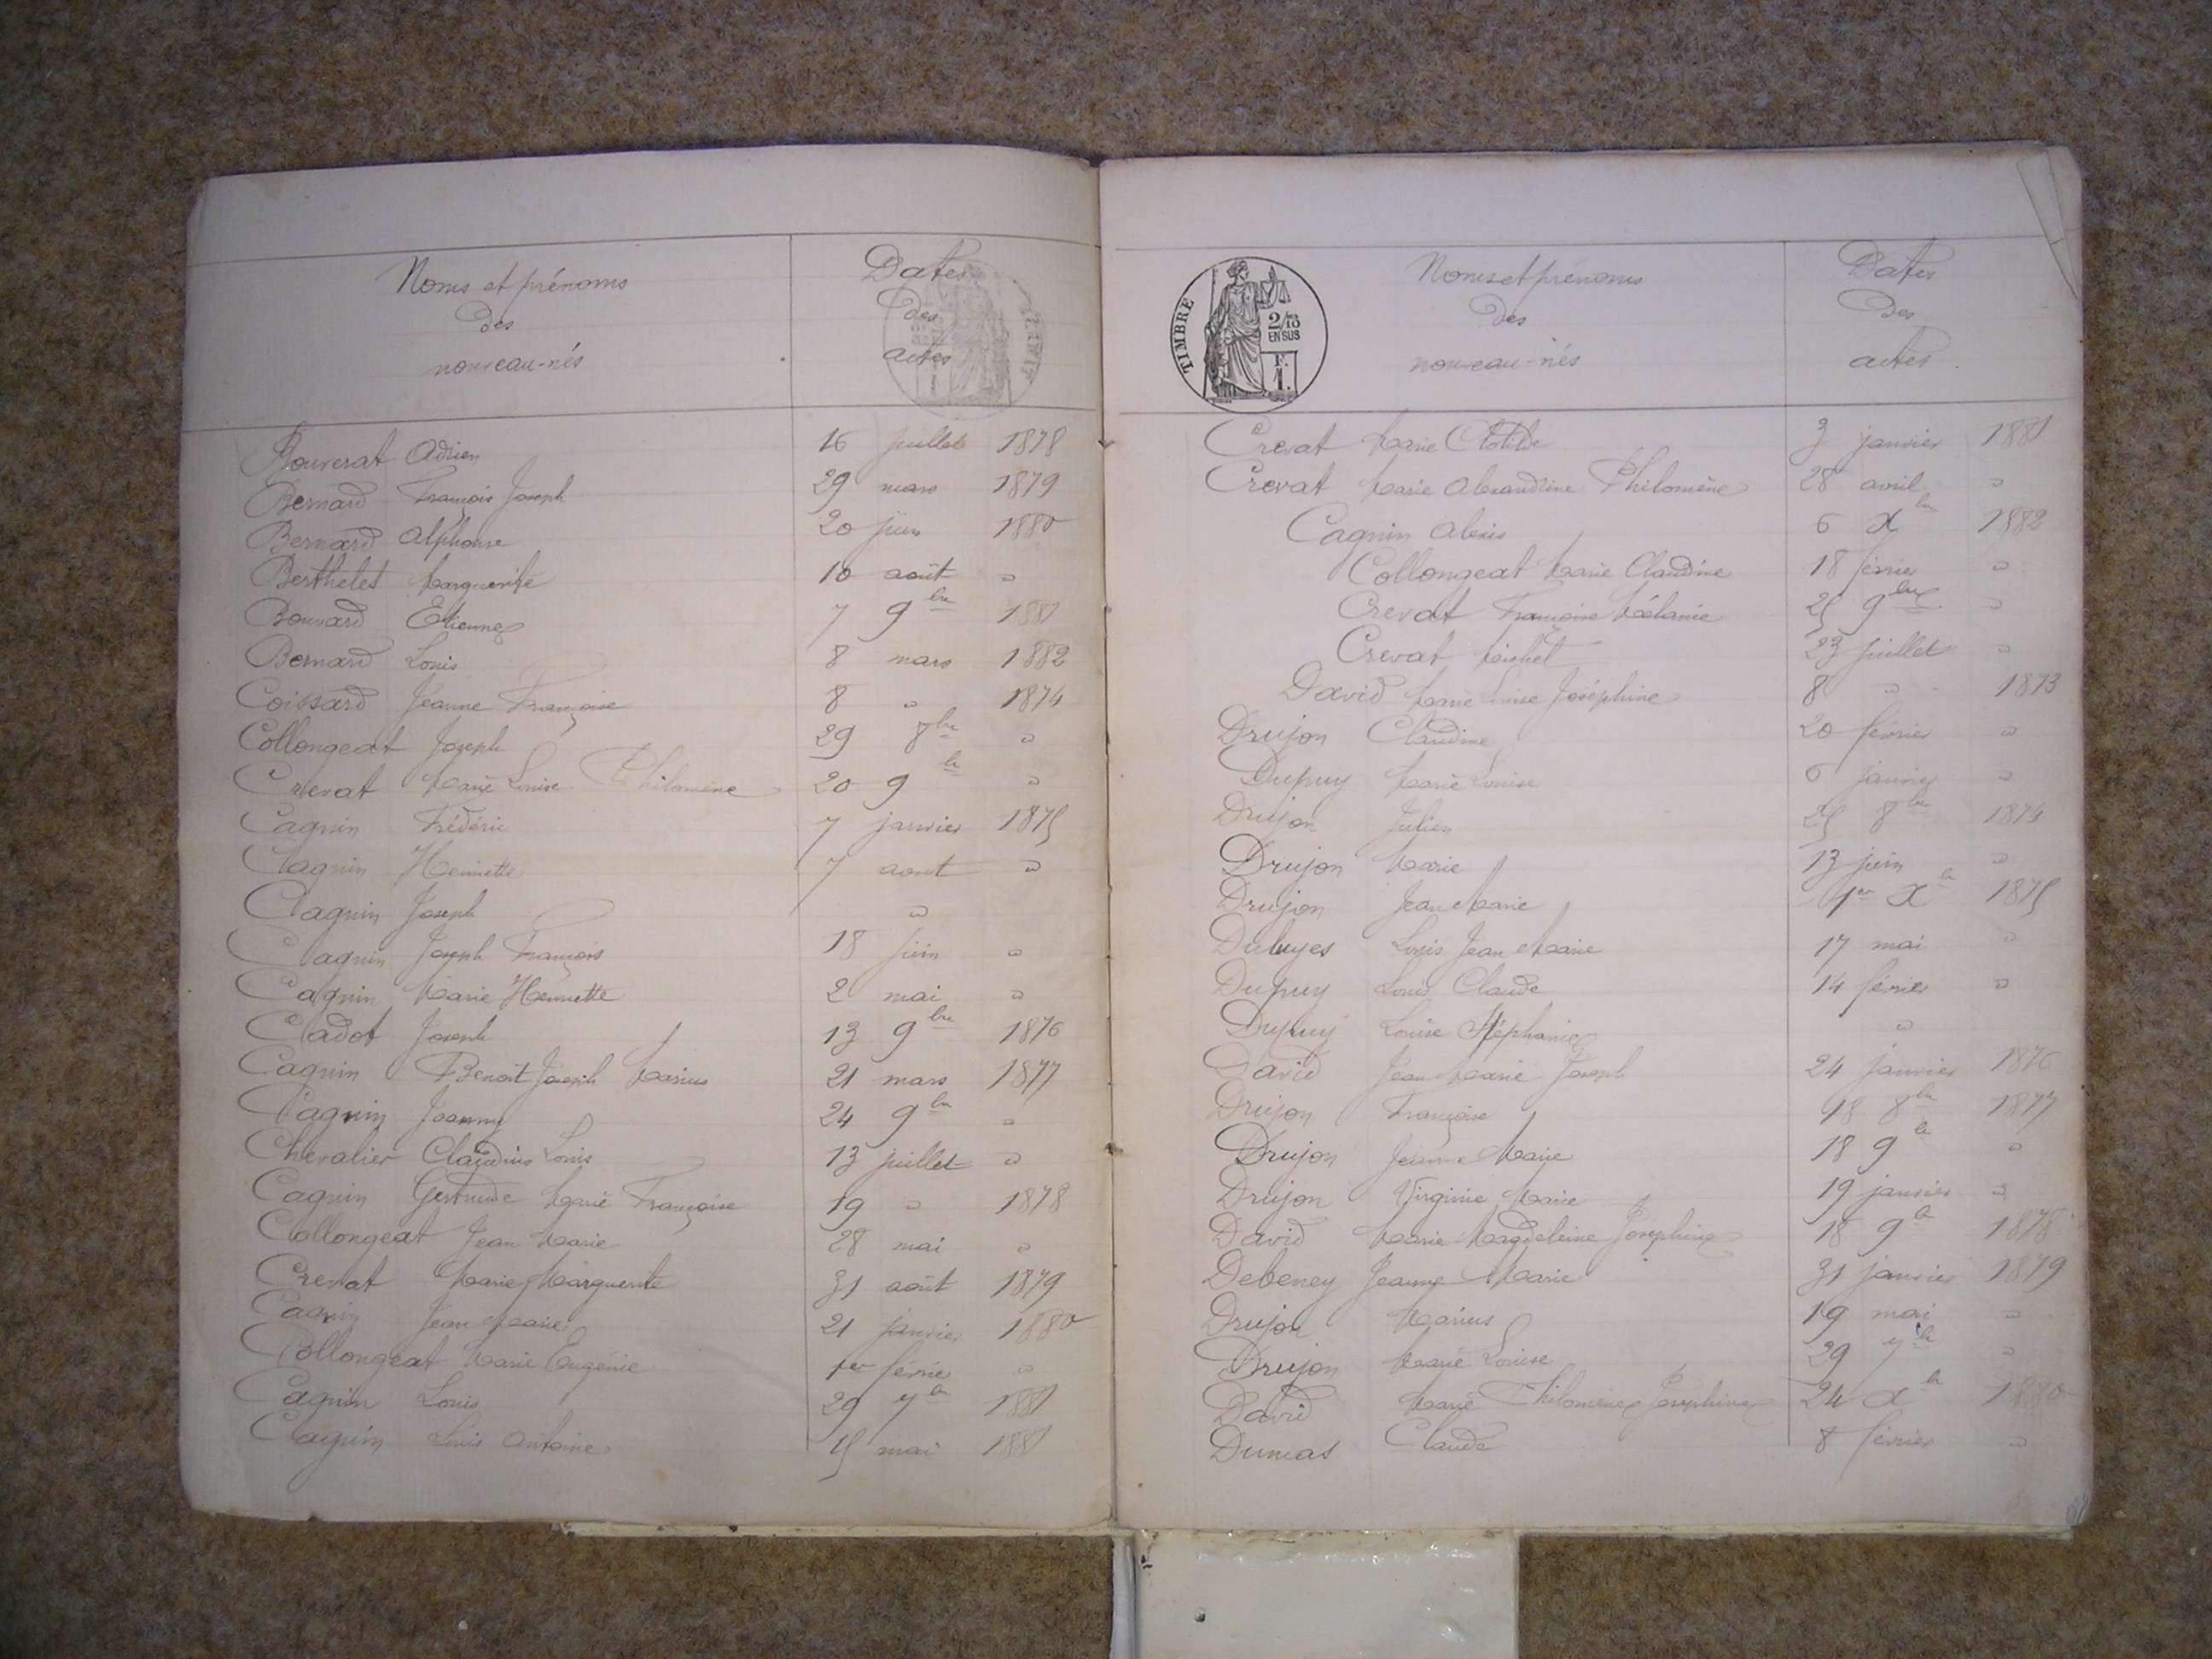 Noms et prénoms
des
nouveau-nés
Dates
des
actes
Bouverat Adrien 16 juillet 1878
Bernard François Joseph 29 mars 1879
Bernard Alphonse 20 juin 1880
Berthelet Marguerite 10 août "
Bouvard Etienne 7 9bre 1881
Bernard Louis 8 mars 1882
Coissard Jeanne Françoise 8 " 1874
Collongeat Joseph 29 8bre "
Crevat Marie Louise Philomène 20 9b "
Cagnin Frédéric 7 janvier 1875
Cagnin Henriette 7 aout "
Cagnin Joseph "
Cagnin Joseph François 18 juin "
Cagnin Marie Henriette 2 mai "
Cadot Joseph 13 9bre 1876
Cagnin Benoit Joseph Marius 21 mars 1877
Cagnin Joanny 24 9bre "
Chevalier Claudius Louis 13 juillet "
Cagnin Gertrude Marie Françoise 19 " 1878
Collongeat Jean Marie 28 mai "
Crevat Marie Marguerite 31 août 1879
Cagnin Jean Marie 21 janvier 1880
Collongeat Marie Eugénie 1er février "
Cagnin Louis 29 7b 1881
Cagnin Louis Antoine 15 mai 1881
TIMBRE
2/10
EN SUS
F.
1.
Noms et prénoms
des
nouveau-nés
Dates
des
actes
Crevat Marie Clotilde 3 janvier 1881
Crevat Marie Alexandrine Philomène 28 avril "
Cagnin Alexis 6 Xbre 1882
Collongeat Marie Claudine 18 février "
Crevat Françoise Mélanie 25 9bre "
Crevat Michel 23 juillet "
David Marie Louise Joséphine 8 " 1873
Drujon Claudine 20 février "
Dupuy Marie Louise 6 janvier "
Drujon Julien 25 8bre 1874
Drujon Marie 13 juin "
Drujon Jean Marie 1er Xb 1875
Louis Jean Marie 17 mai "
Dupuy Louis Claude 14 février "
Dupuy Louise Stéphanie "
David Jean Marie Joseph 24 janvier 1876
Drujon Françoise 18 8bre 1877
Drujon Jeanne Marie 18 9b "
Drujon Virginie Marie 19 janvier "
David Marie Magdeleine Joséphine 18 9b 1878
Debeney Jeanne Marie 31 janvier 1879
Drujon Marius 19 mai "
Drujon Marie Louise 29 7b "
David Marie Philomène Joséphine 24 Xb 1880
Dumas Claude 8 février "